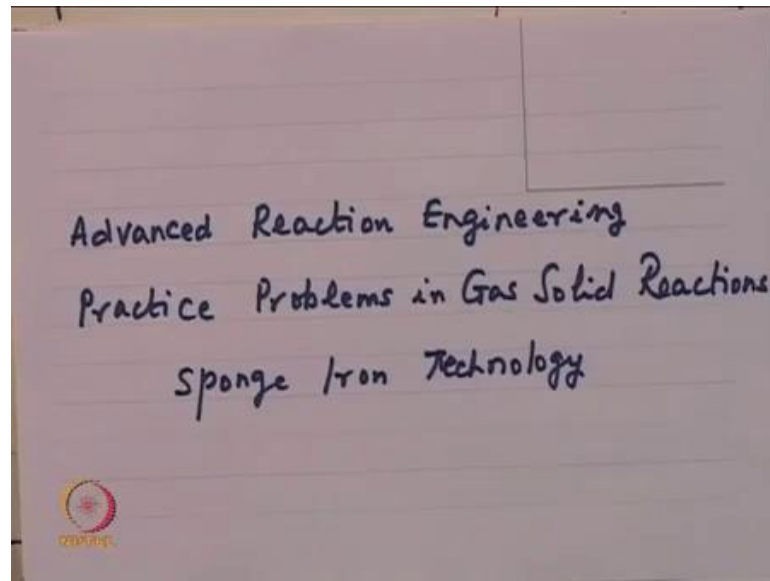 Advanced Reaction Engineering
Practice Problems in Gas Solid Reactions
Sponge Iron Technology
NPTEL